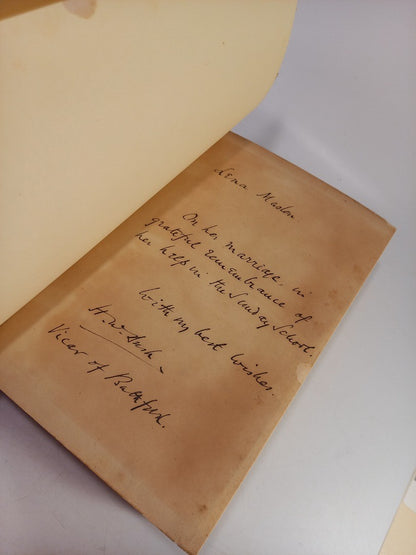 Lena Maslen
On her marriage, in
grateful remembrance of
her help in the Sunday School.
With my best wishes.
Vicar of Batheford.